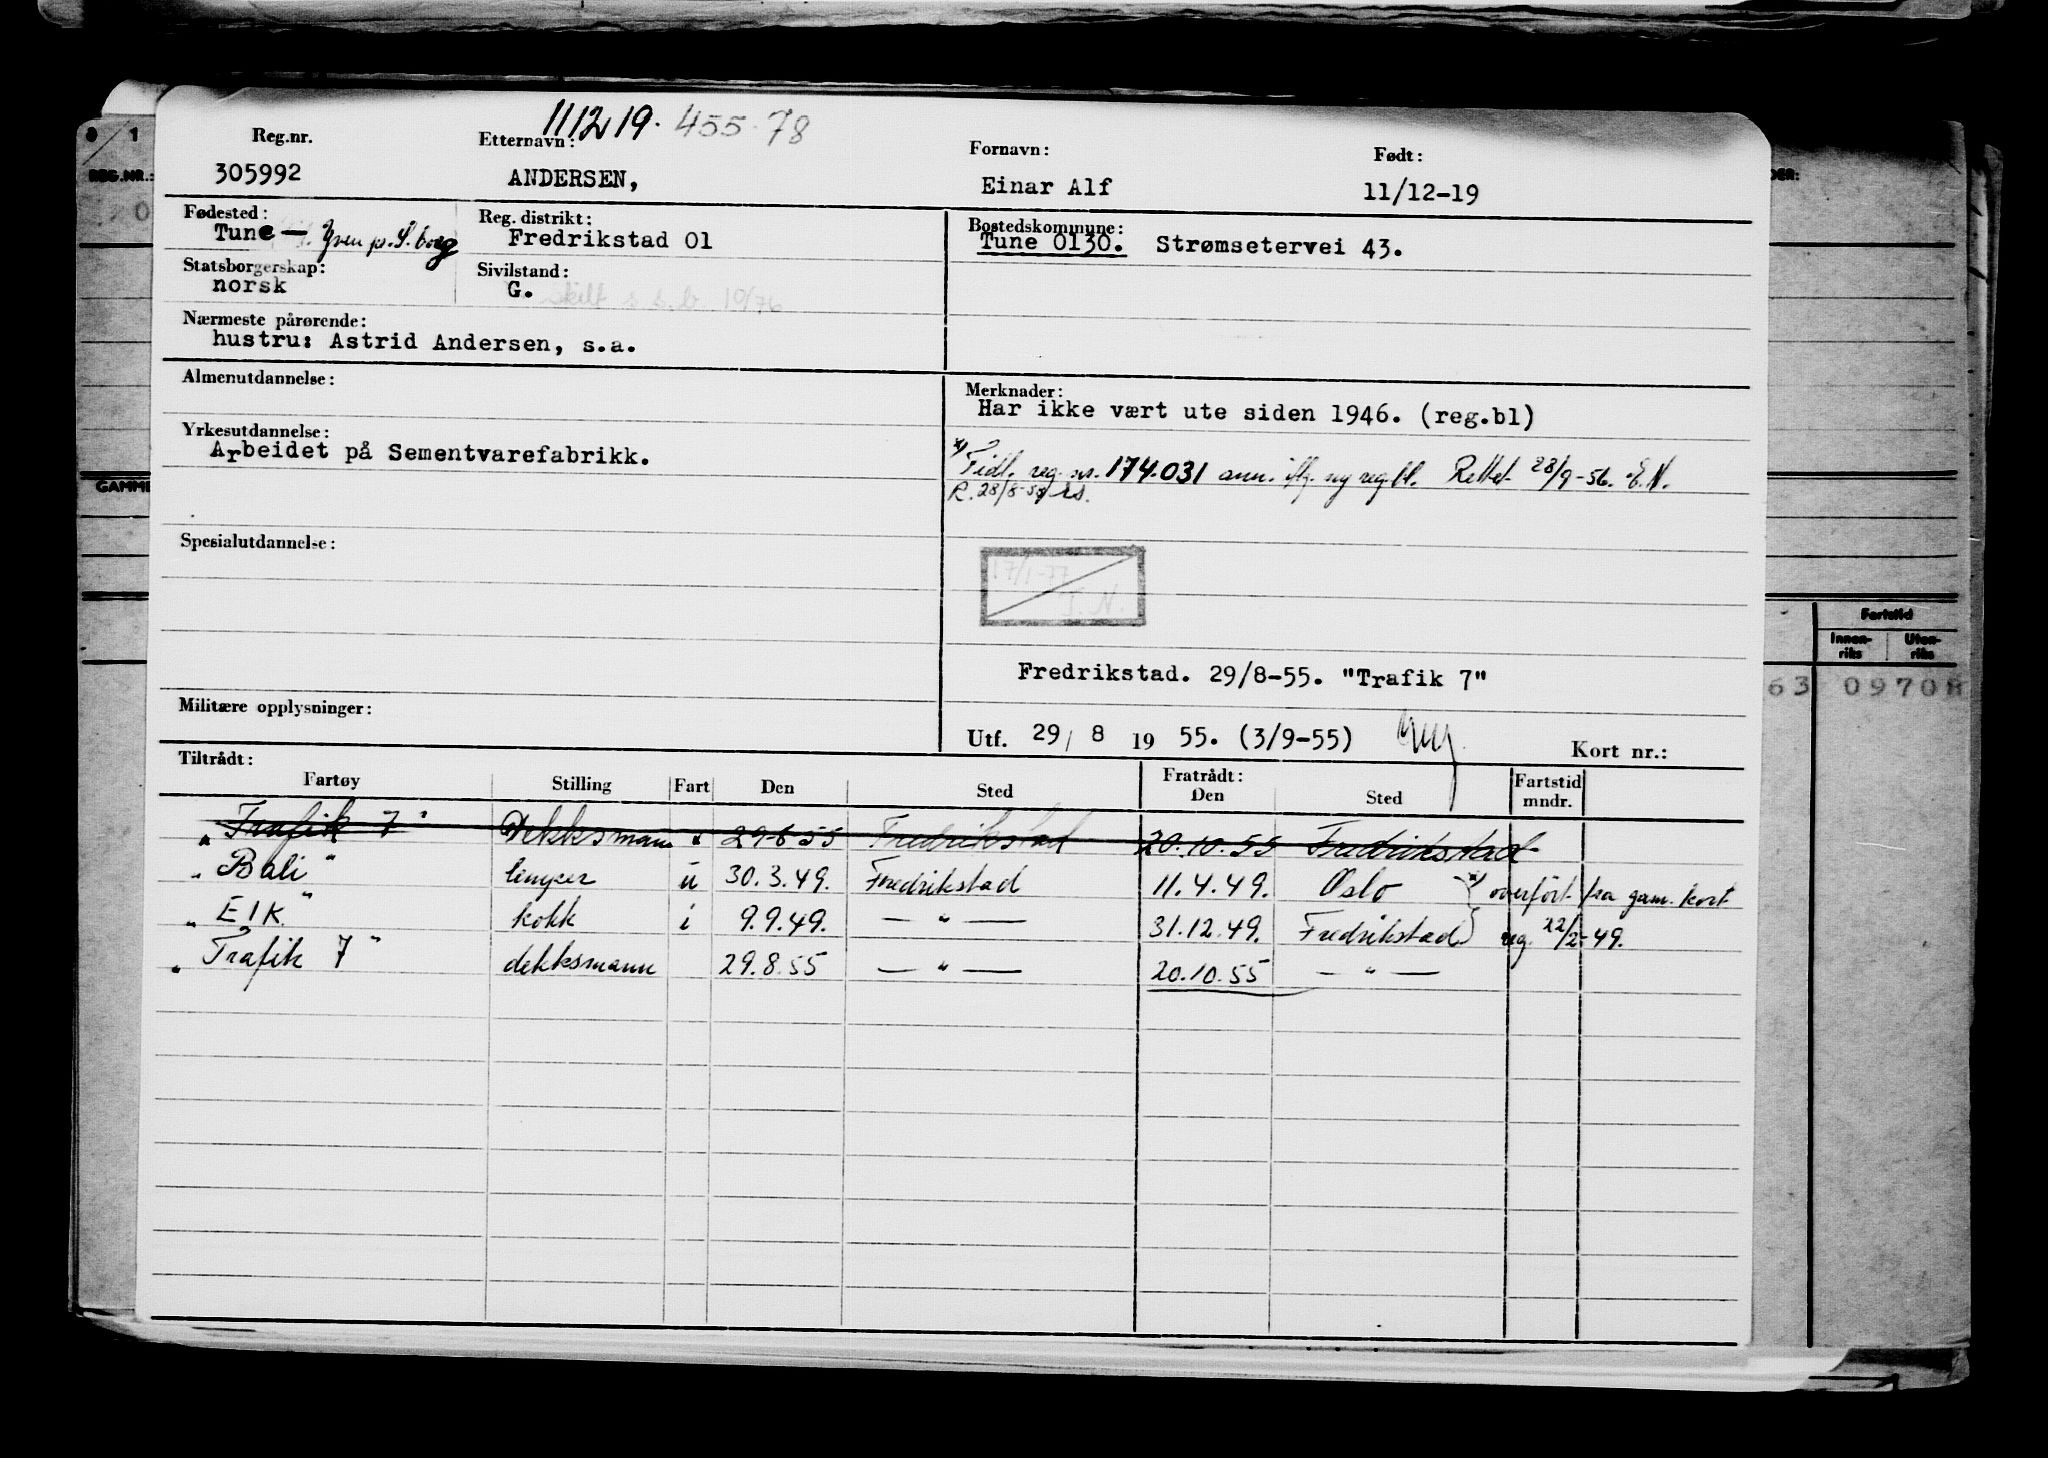 111219. 455 78
Reg.nr. Etternavn: Fornavn: Født:
305992 ANDERSEN, Einar Alf 11/12-19
Fødested: Reg. distrikt: Bostedskommune:
Tune — Yven pr. S.borg Fredrikstad 01 Tune 0130. Strømsetervei 43.
Statsborgerskap: Sivilstand:
norsk G. skilt s.s.b. 10/76
Nærmeste pårørende:
hustru: Astrid Andersen, s.a.
Almenutdannelse: Merknader:
Har ikke vært ute siden 1946. (reg.bl)
Yrkesutdannelse:
Arbeidet på Sementvarefabrikk.
*) Tidl. reg. nr. 174.031 ann. iflg. ny reg.bl. Rettet 28/9-56. E.N.
R. 28/8-58
Spesialutdannelse:
17/1-77
I.N.
Fredrikstad. 29/8-55. "Trafik 7"
Militære opplysninger:
Utf. 29/ 8 19 55. (3/9-55) Kort nr.:
Tiltrådt: Fratrådt:
Fartøy Stilling Fart Den Sted Den Sted Fartstid mndr.
"Trafik 7" Dekksmann 29-8 55 Fredrikstad 20.10.55 Fredrikstad
"Bali" lemper u 30.3.49. Fredrikstad 11.4.49. Oslo *) overført fra gam. kort
"EIK" kokk i 9.9.49. — " — 31.12.49. Fredrikstad reg. 22/2-49.
"Trafik 7" dekksmann 29.8.55 — " — 20.10.55 — " —
0/1
REG.NR.:
GAMME
DER:
Fartstid
Innen-riks Uten-riks
63 09708